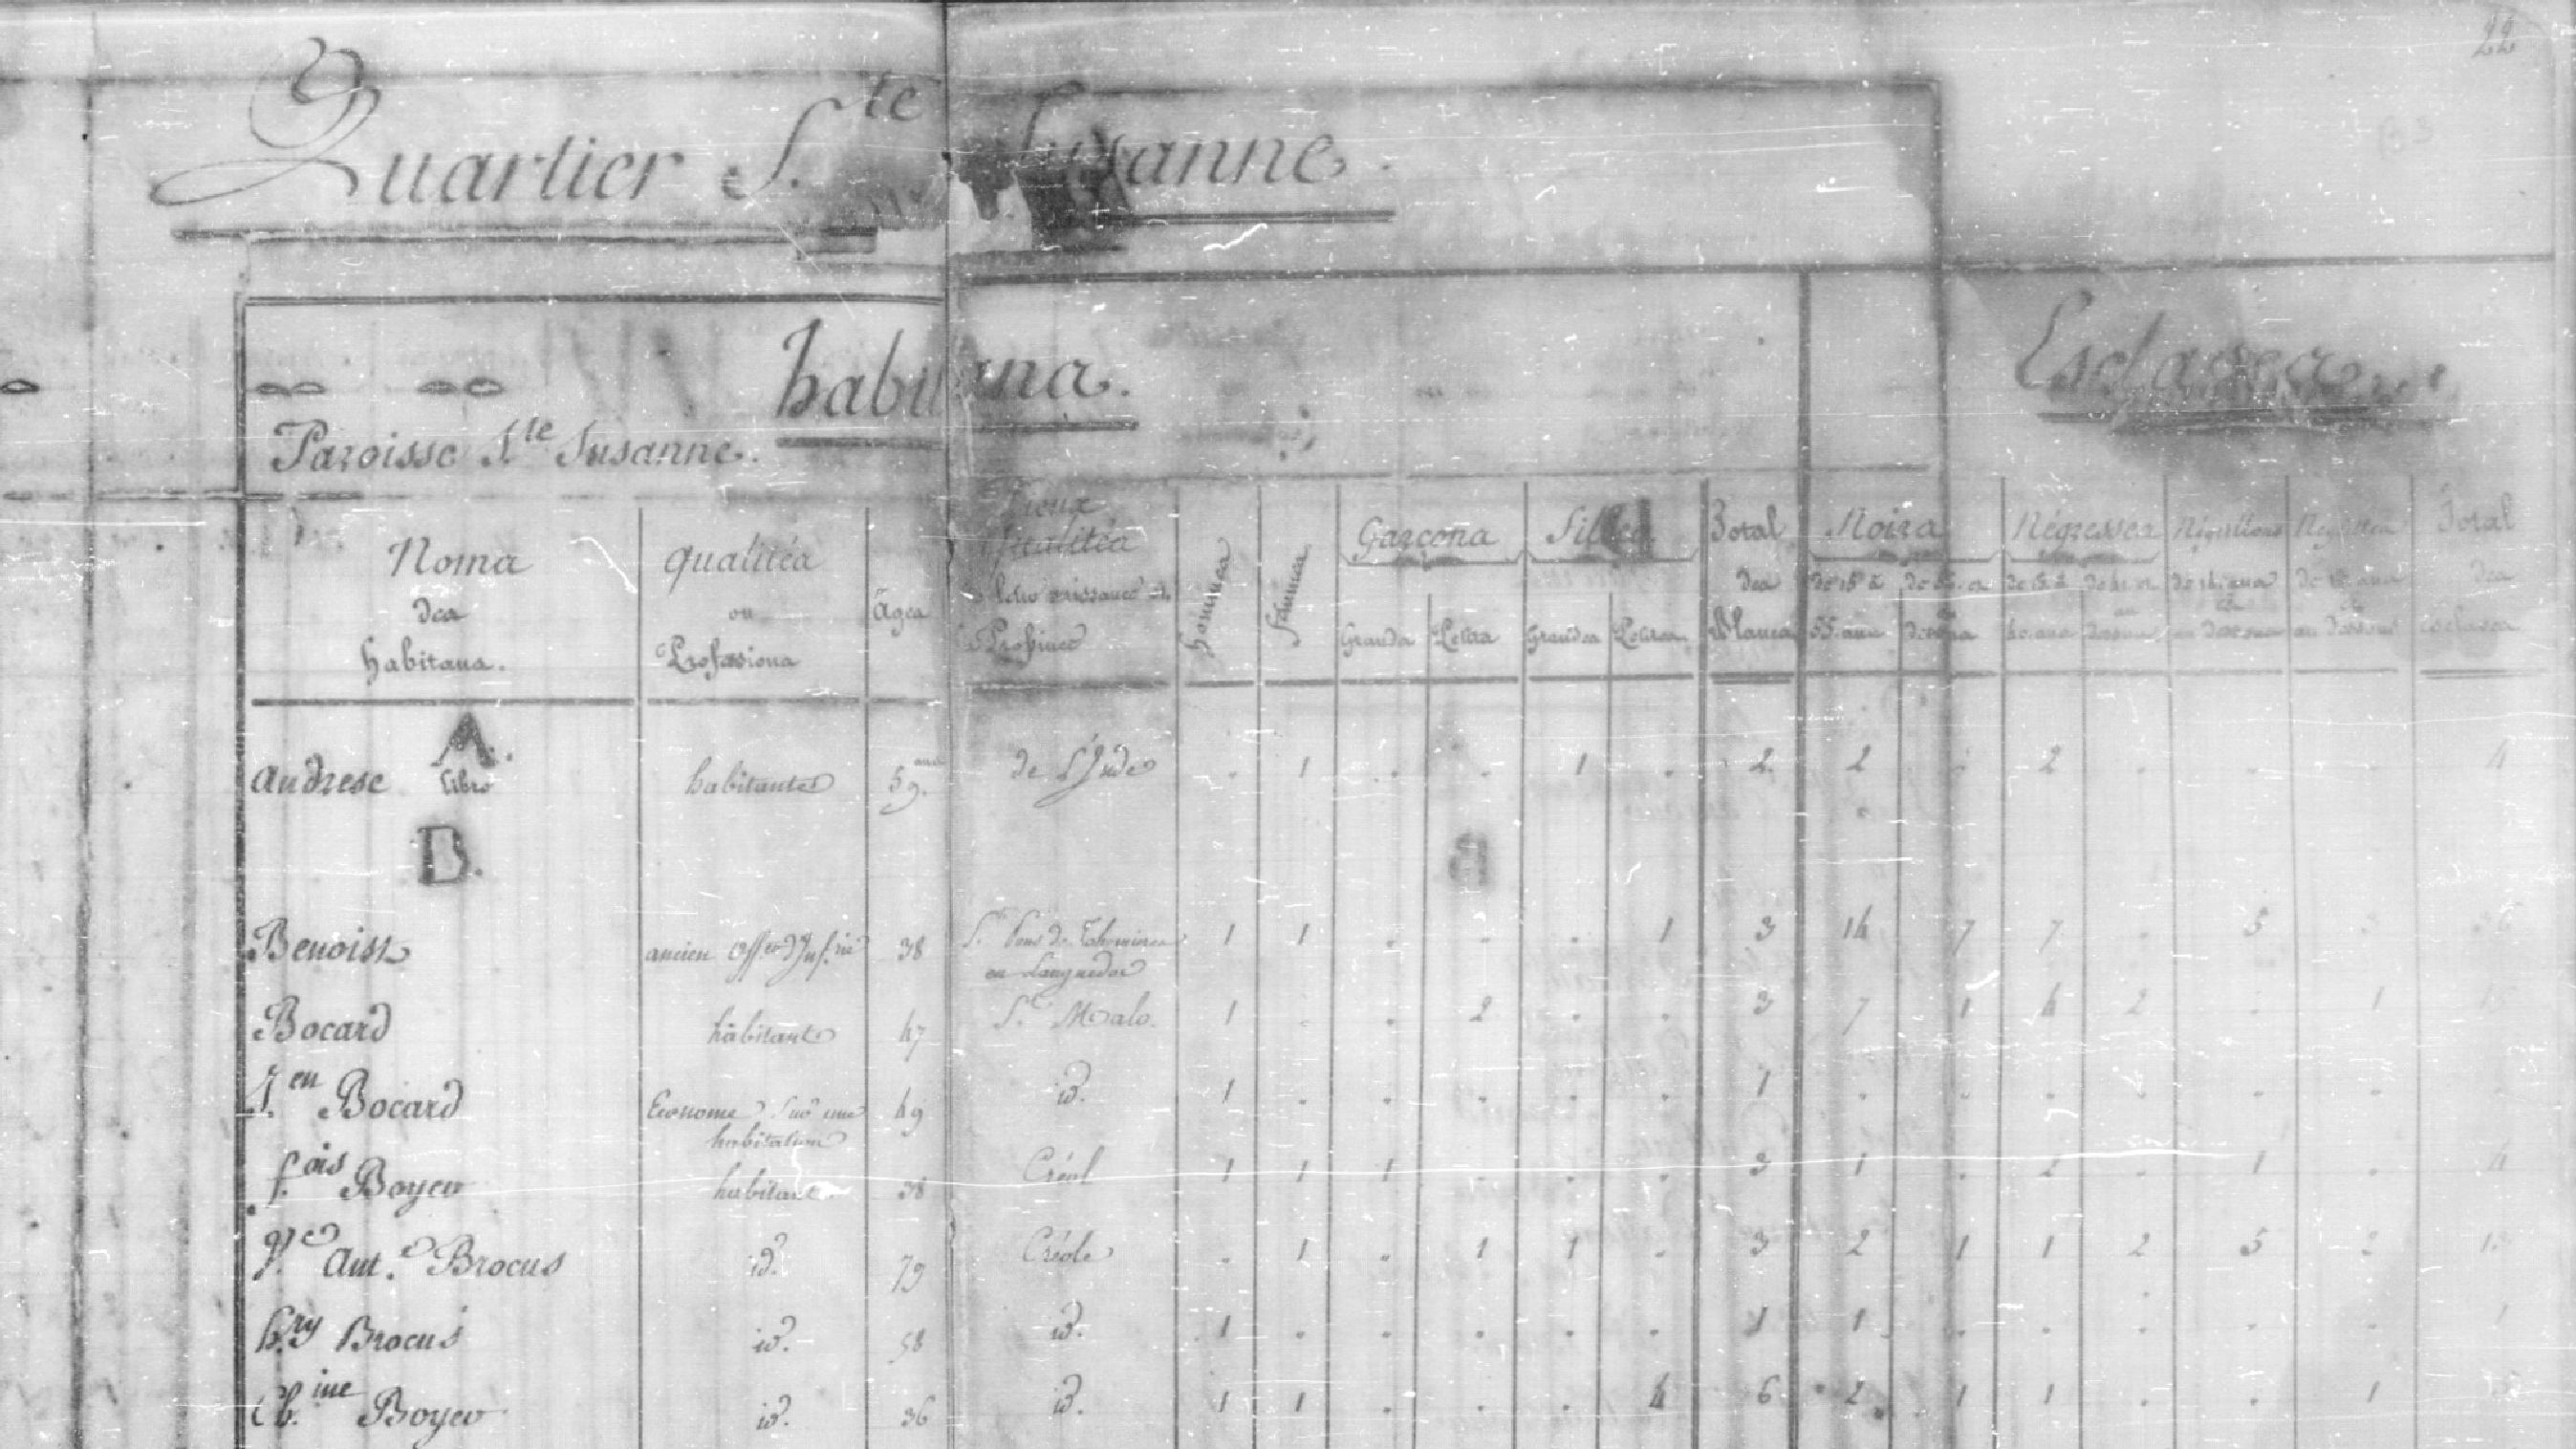 22
Quartier S.te Susanne.
habitans.
Esclaves
Paroisse S.te Susanne.
Noms des habitans. qualités ou Professions âges qualités Province hommes femmes Garçons Grands Petits Filles Grandes Petites Total des Blancs Noirs de 15 à 55. ans Négresses Négrillons Total des esclaves
A.
Andrese libre habitante 59. ans de L'Jnde . 1 . . 1 . 2 2 . 2 . . . 4
B.
Benoist ancien Off.er d'Jnf.rie 38 S.t Pons de 1 1 . . . 1 3 14 7 7 . 5
en Languedoc
Bocard habitant 47 S.t Malo. 1 . . 2 . . 3 7 1 4 2 . 1
J.en Bocard Econome Sur une 49 id. 1 . . . . . 1 . . . . . .
habitation
f.ois Boyer habitant 38 Créol 1 1 1 . . . 3 1 . 2 . 1 . 4
V.e Ant.e Brocus id. 79 Créole . 1 . 1 1 . 3 2 1 1 2 5 2
h.ry Brocus id. 58 id. 1 . . . . . 1 1 . . . . . 1
Ch.ine Boyer id. 36 id. 1 1 . . . 4 6 2 1 1 . . 1